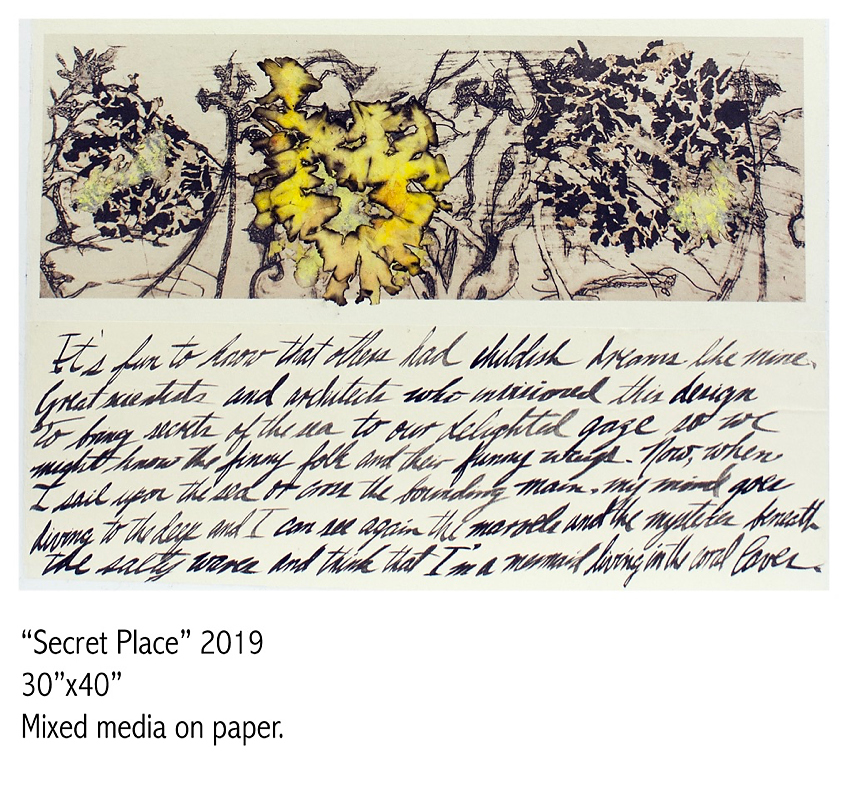 It's fun to know that others had childish dreams like mine.
Great scientists and architects who envisioned this design
to bring secrets of the sea to our delighted gaze so we
might know the finny folk and their funny ways. Now, when
I sail upon the sea or cross the bounding main, my mind goes
diving to the deep and I can see again the marvels and the mysteries beneath
the salty waves and think that I'm a mermaid living in the coral caves.
“Secret Place” 2019
30”x40”
Mixed media on paper.